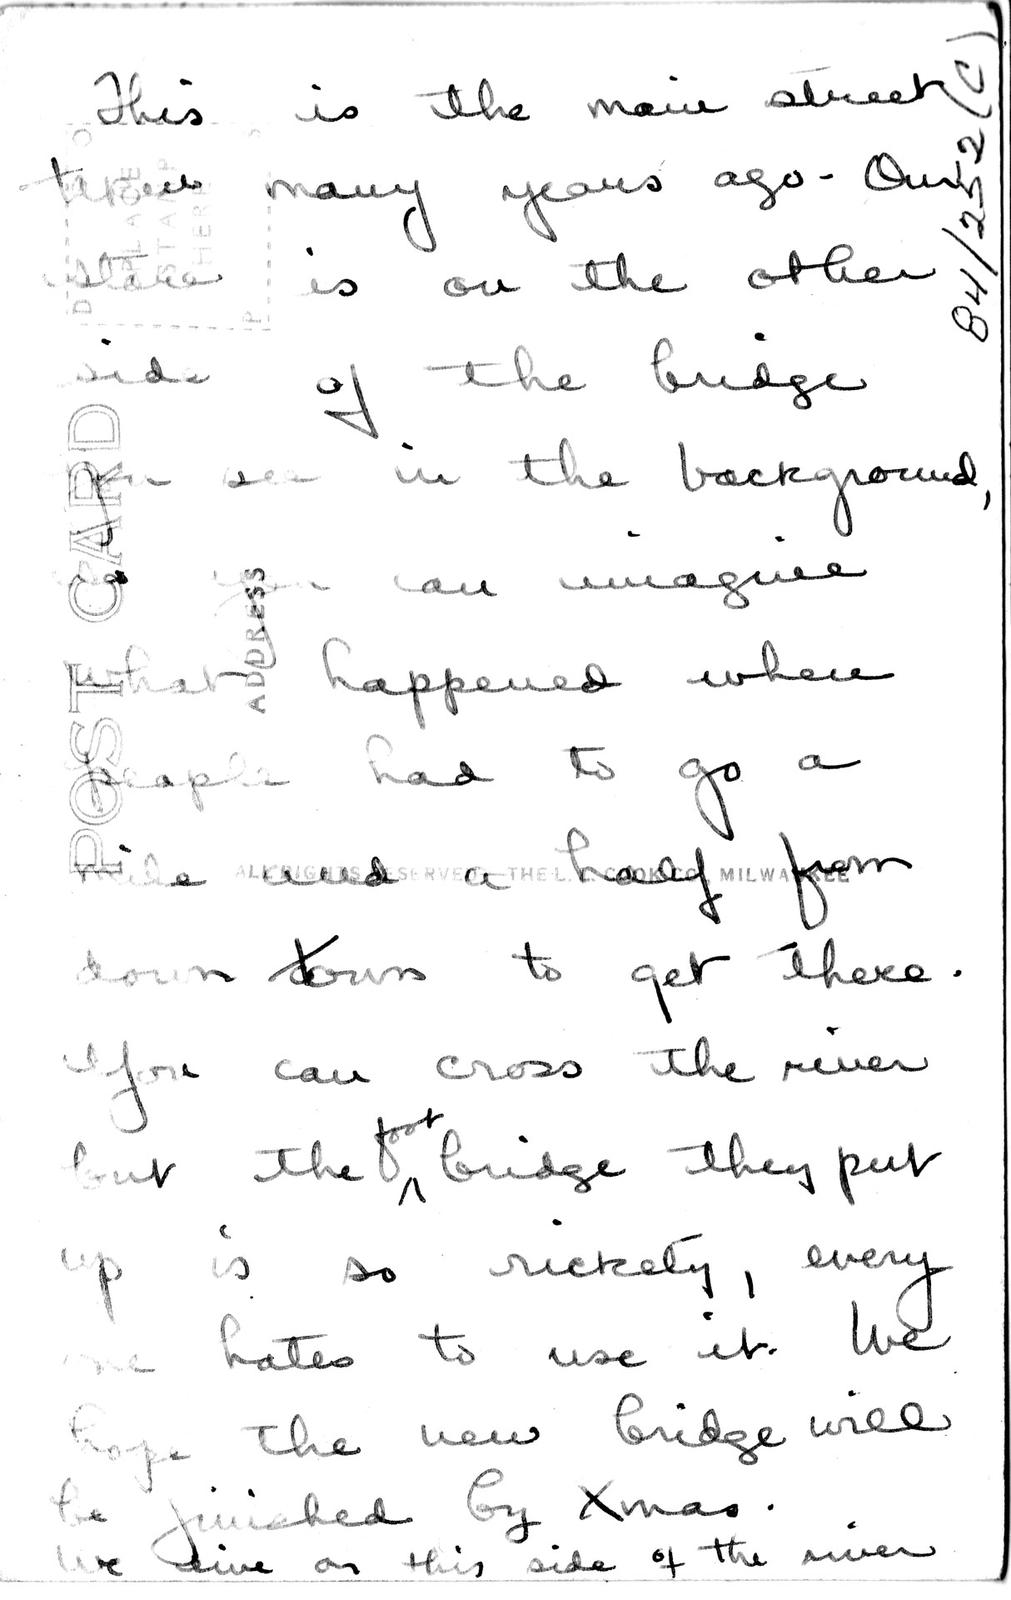 This is the main street
taken many years ago - Our
store is on the other
side of the bridge
you see in the background,
so you can imagine
what happened when
people had to go a
mile and a half from
down town to get there.
You can cross the river
but the foot bridge they put
up is so rickety, every
one hates to use it. We
hope the new bridge will
be finished by Xmas.
We live on this side of the river
84/252(C)
PLACE
STAMP
HERE
POST CARD
ADDRESS
ALL RIGHTS RESERVED - THE L. L. COOK CO. MILWAUKEE